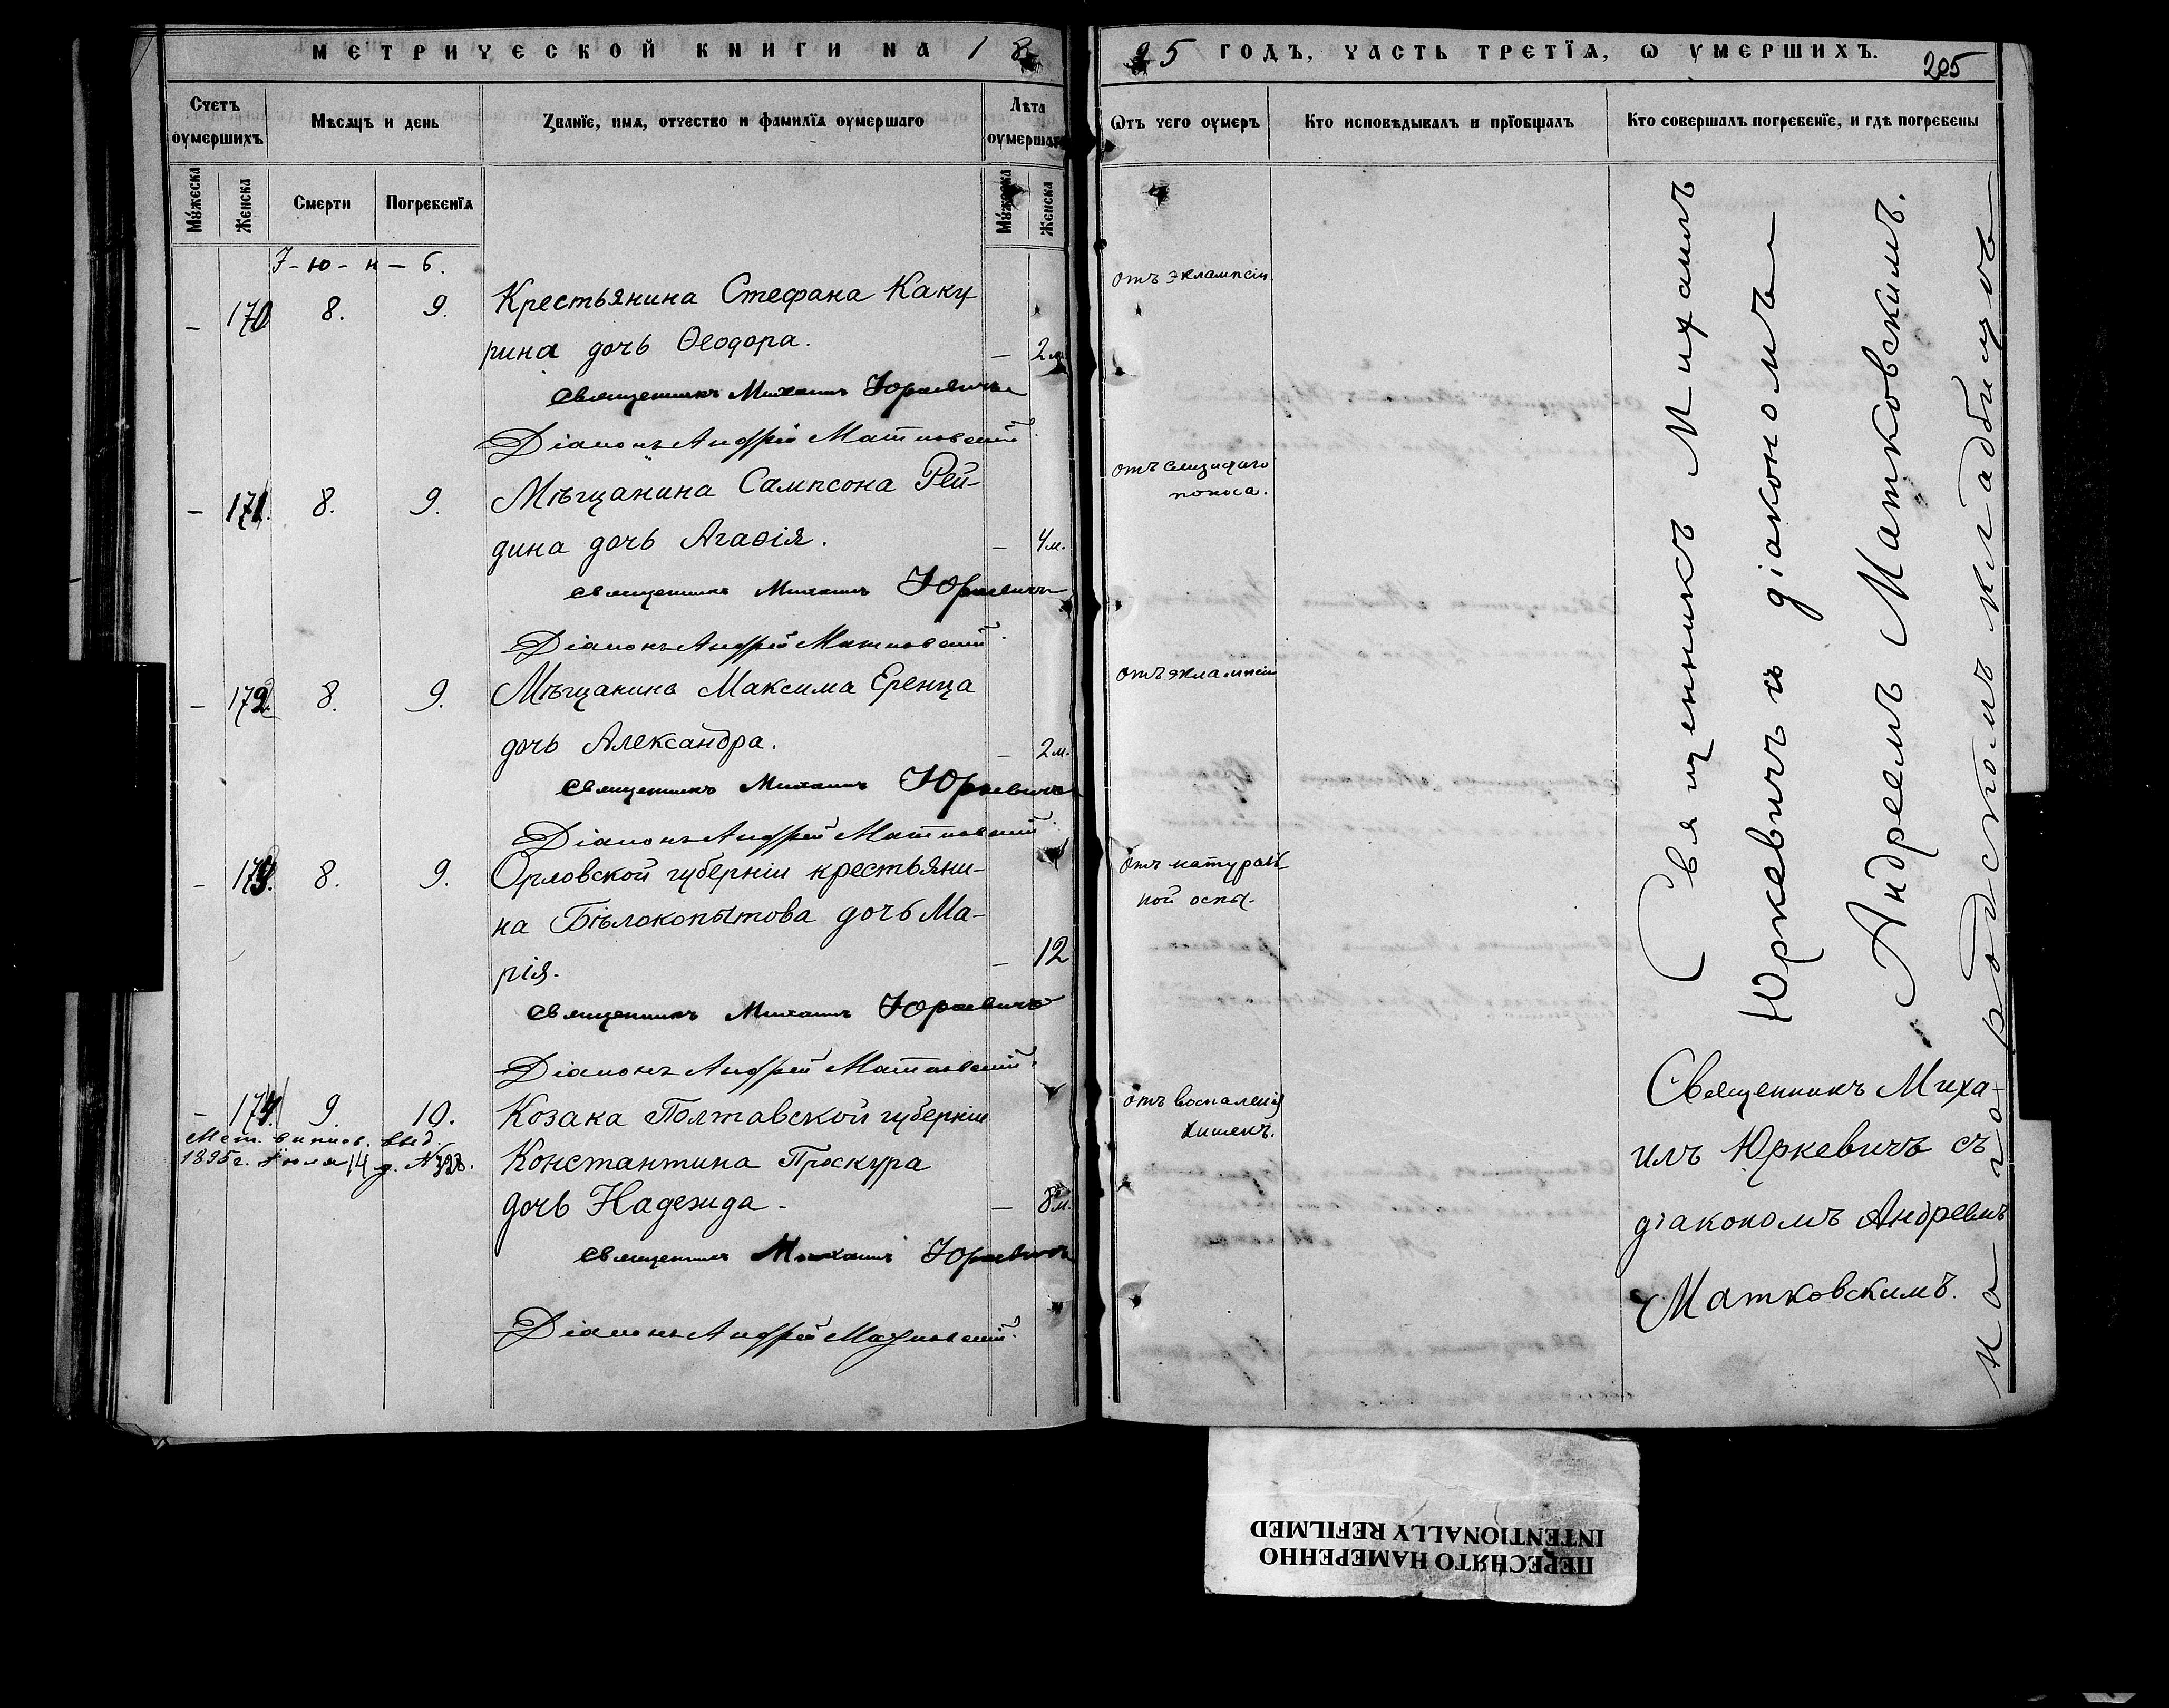 МЕТРИЧЕСКОЙ КНИГИ НА 18
95 ГОДЪ, ЧАСТЬ ТРЕТІѦ, Ѡ УМЕРШИХЪ.
205
Счетъ оумершихъ
Мѣсѧцъ и день
Званїе, имѧ, отчество и фамилїѧ оумершаго
Лѣта оумершаго
Ѿтъ чего оумеръ
Кто исповѣдывалъ и прїобщалъ
Кто совершалъ погребенїе, и гдѣ погребены
Мужеска
Женска
Смерти
Погребенїѧ
Мужеска
Женска
I-ю-н-ь.
— 170 8. 9. Крестьянина Стефана Каку
рина дочь Ѳеодора. — 2 м.
отъ эклампсіи
Священникъ Михаилъ Юркевичъ
Діаконъ Андрей Матковскій
— 171. 8. 9. Мѣщанина Сампсона Рей-
дина дочь Агаѳія. — 4 м.
отъ слизистаго
поноса.
Священникъ Михаилъ Юркевичъ
Діаконъ Андрей Матковскій
— 172. 8. 9. Мѣщанина Максима Еренца
дочь Александра. — 2 м.
отъ эклампсіи
Священникъ Михаилъ Юркевичъ
Діаконъ Андрей Матковскій
— 173. 8. 9. Орловской губерніи крестьяни-
на Бѣлокопытова дочь Ма-
рія. — 12
отъ натураль
ной оспы.
Священникъ Михаилъ Юркевичъ
Діаконъ Андрей Матковскій
— 174. 9. 10. Козака Полтавской губерніи
Константина Проскура
дочь Надежда — 8 м.
отъ воспаленія
кишекъ.
Мет. выпись. выд.
1895 г. Іюля 14 д.
Священникъ Михаилъ Юркевичъ
Діаконъ Андрей Матковскій
Священникъ Михаилъ
Юркевичъ съ діакономъ
Андреемъ Матковскимъ.
на городскомъ кладбищѣ
Священникъ Миха-
илъ Юркевичъ съ
діакономъ Андреемъ
Матковскимъ.
ПЕРЕСНЯТО НАМЕРЕННО
INTENTIONALLY REFILMED